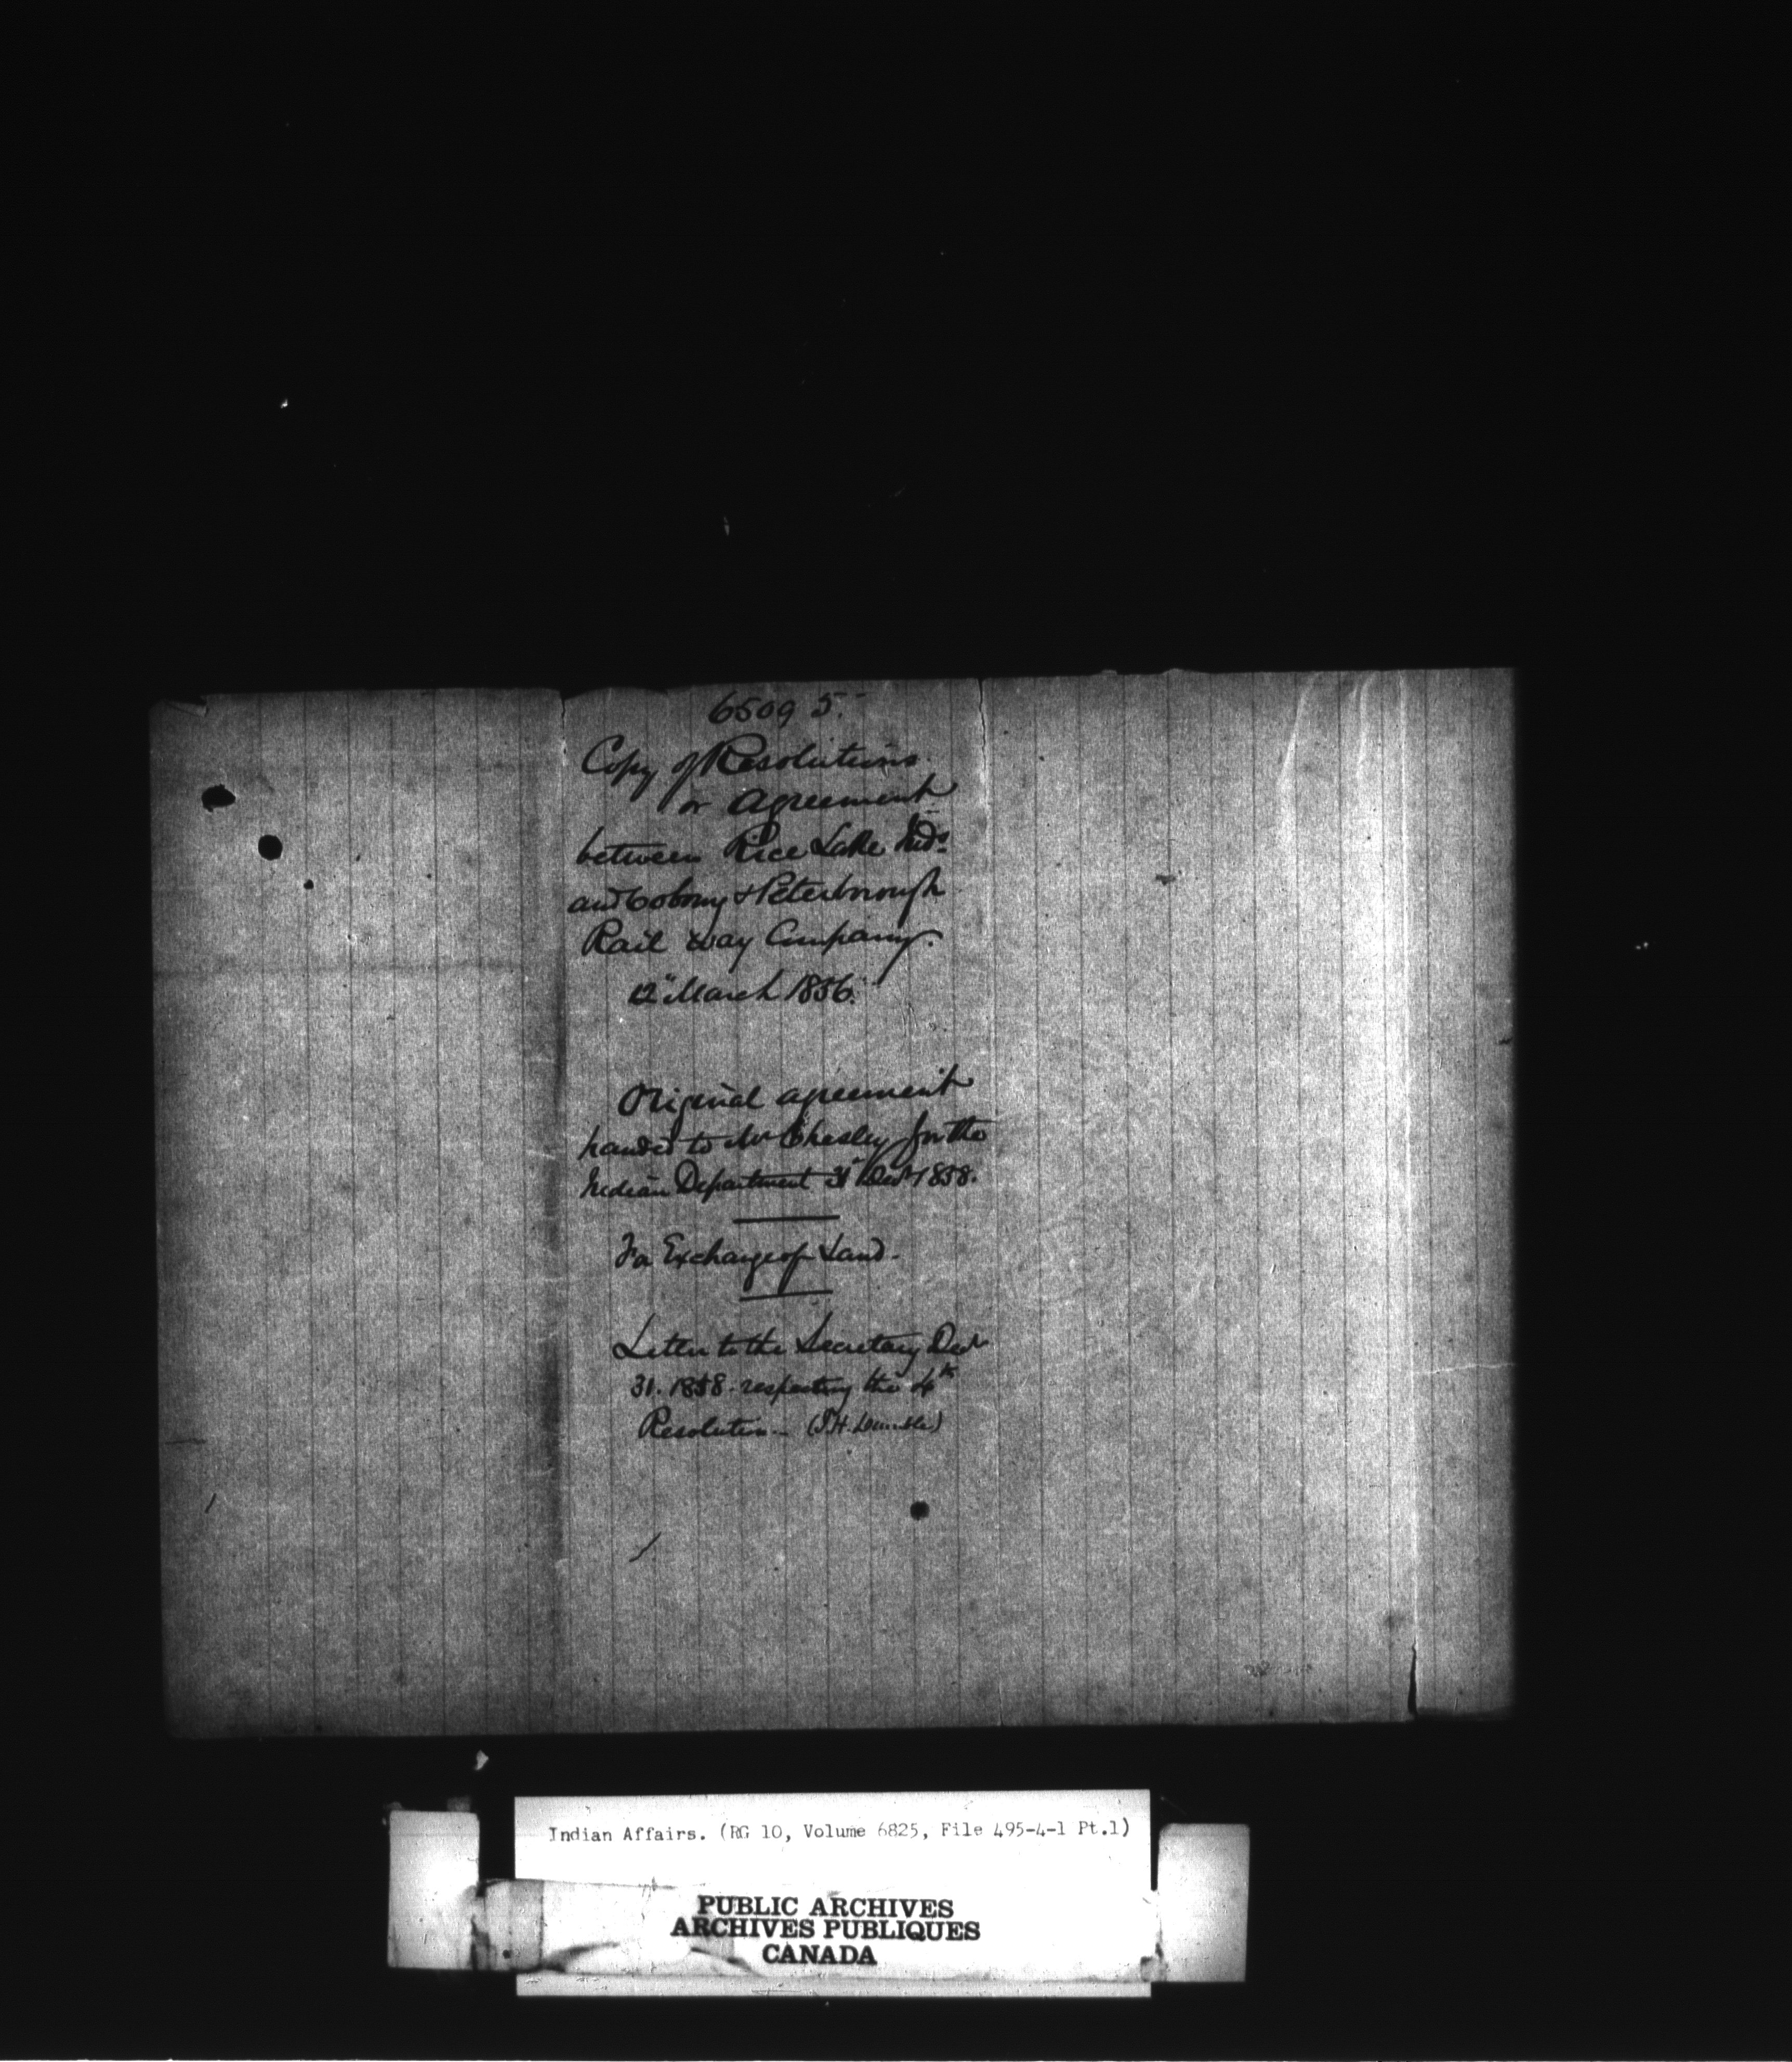 65095.
Copy of Resolutions
or Agreement
between Rice Lake Inds.
and Cobourg & Peterborough
Rail way Company.
12" March 1856.
Original agreement
handed to Mr Chesley for the
Indian Department 31 Decr 1858.
For Exchange of Land.
Letter to the Secretary Decr
31. 1858. respecting the 4th
Resolution. (J.H. Dumble)
Indian Affairs. (RG 10, Volume 6825, File 495-4-1 Pt.1)
PUBLIC ARCHIVES
ARCHIVES PUBLIQUES
CANADA